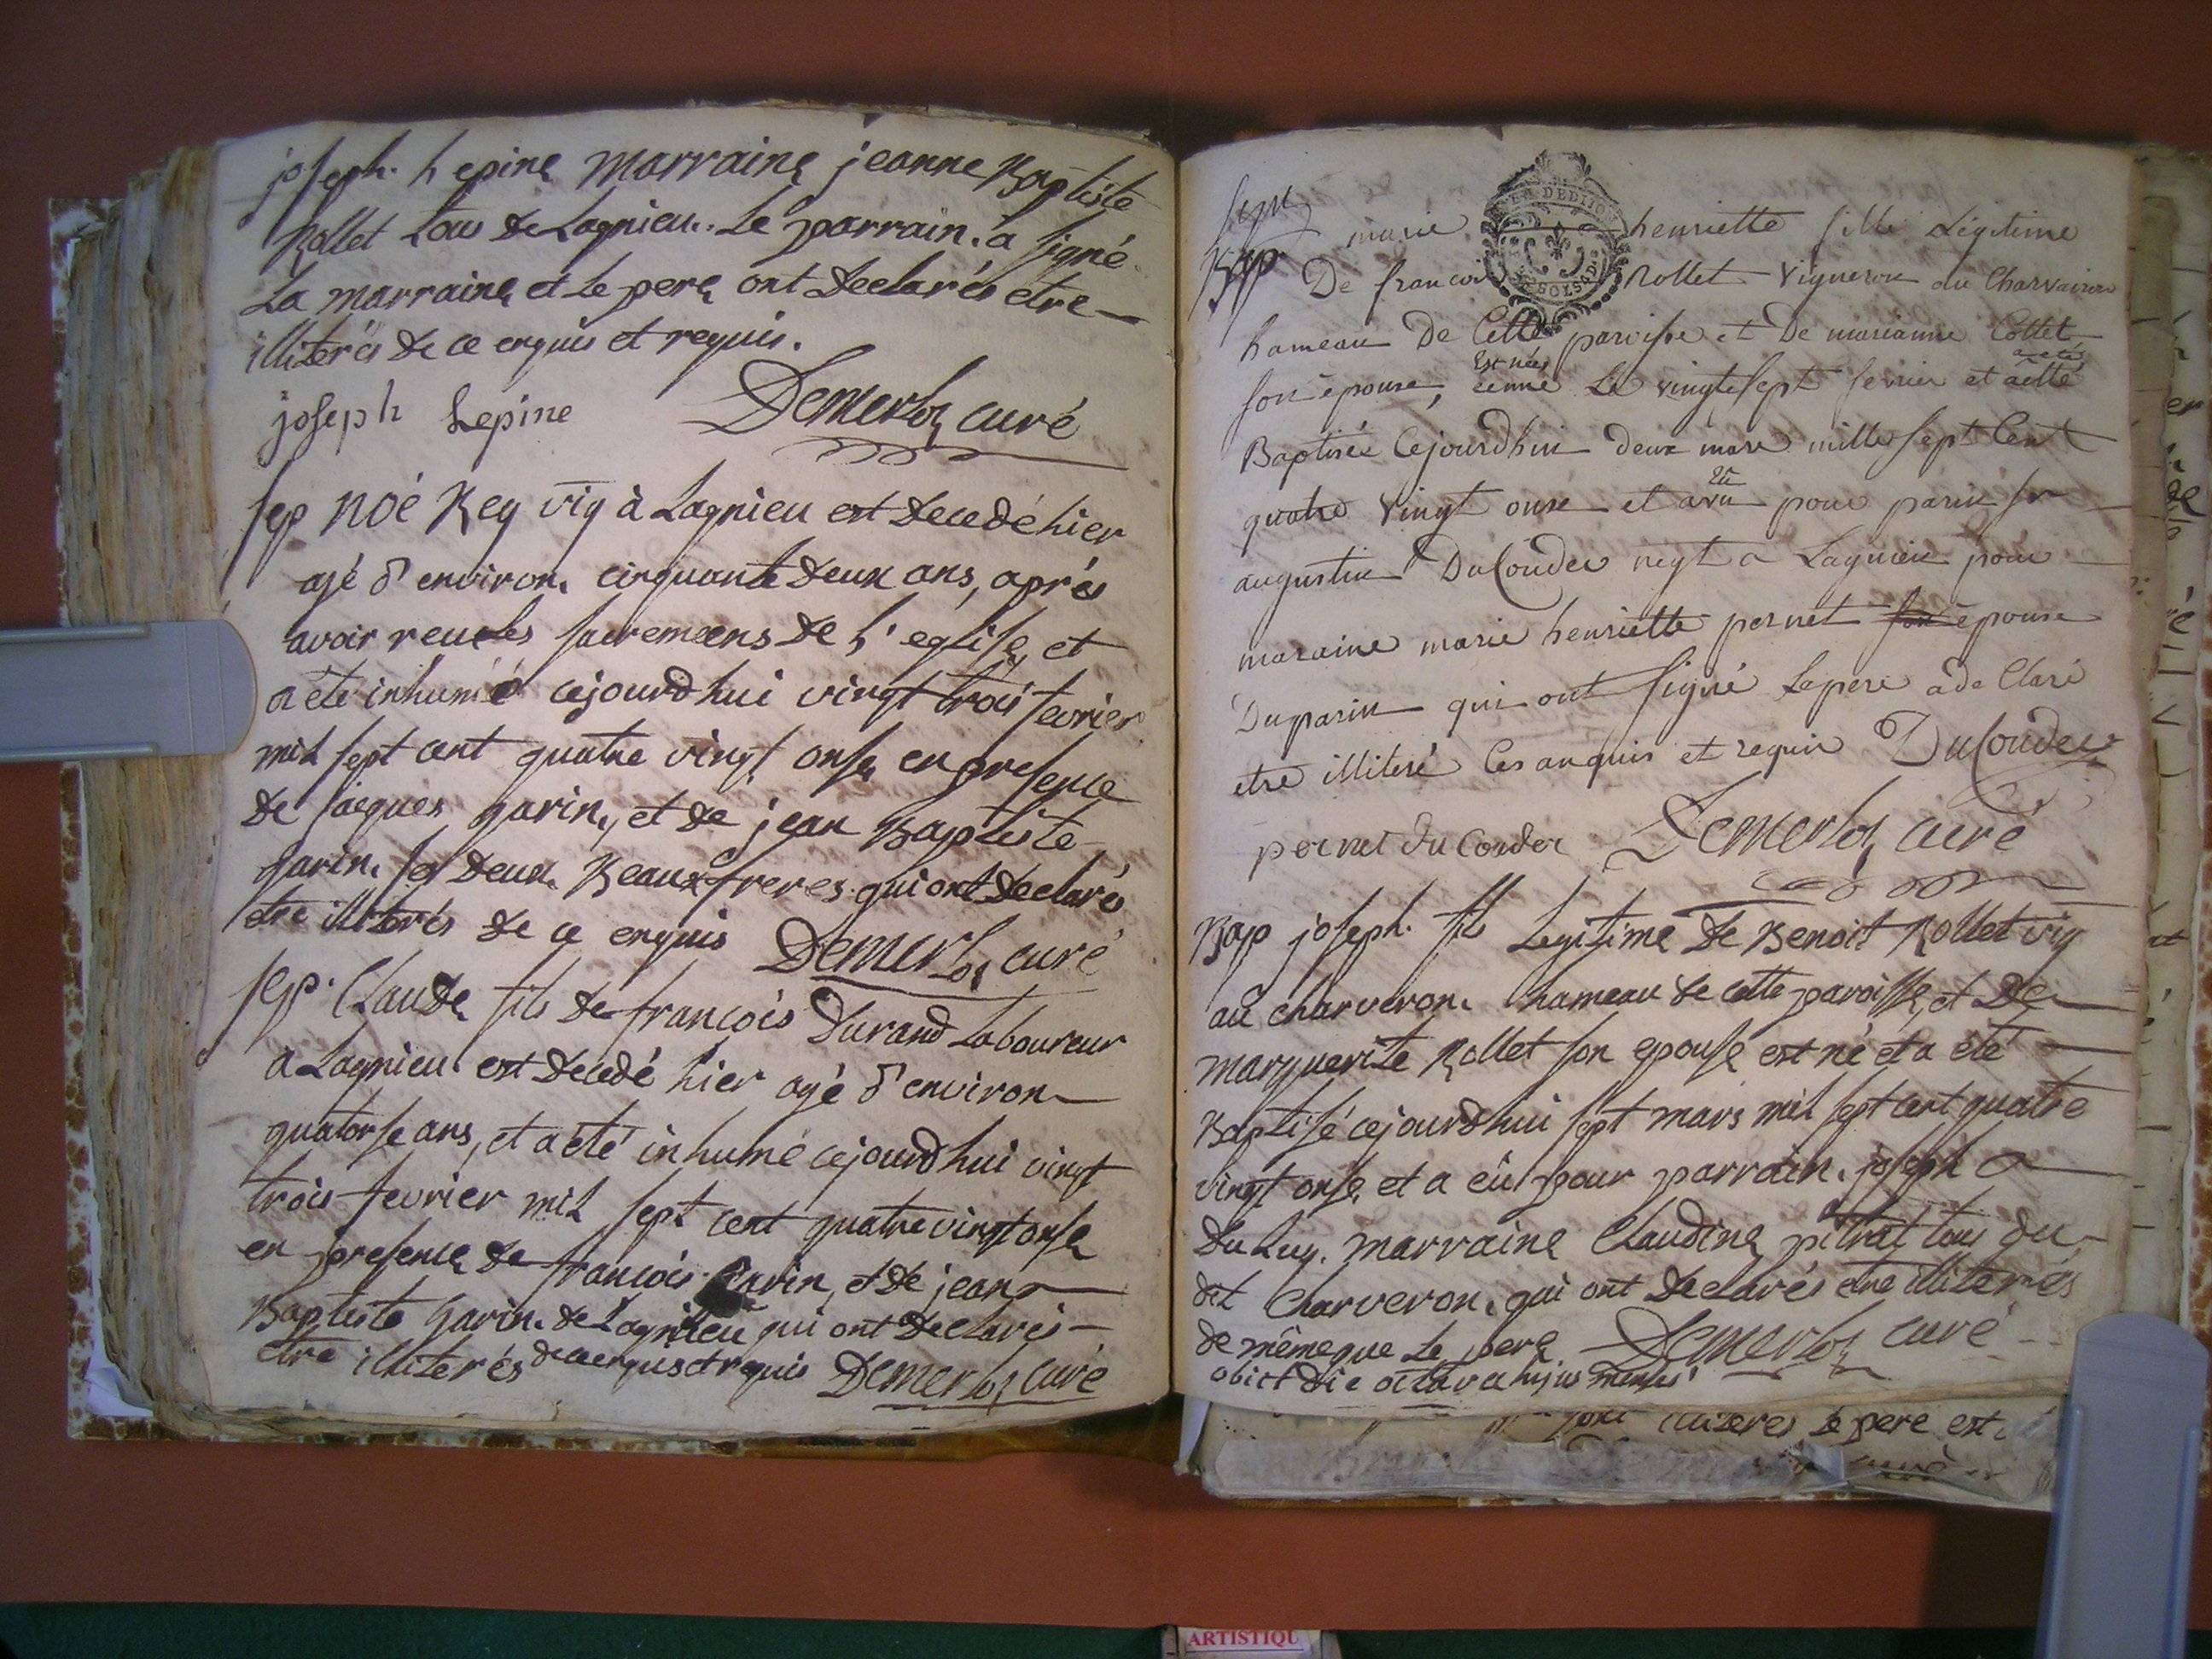 joseph. Lepine marraine jeanne Baptiste
Rollet tous de Lagnieu. Le parrain. a signé
La marraine et Le pere ont declarés etre
illiterés de ce enquis et requis.
joseph Lepine Demerloz curé
sep Noé Rey vig à Lagnieu est decedé hier
agé d'environ. cinquante deux ans, aprés
avoir reçu les sacremens de L'eglise et
a été inhumé cejourdhui vingt trois fevrier
mil sept cent quatre vingt onse en presence
de jacques garin, et de jean Baptiste
garin. ses deux. Beaux freres. qui ont declarés
etre illiterés de ce enquis Demerloz curé
sep. Claude fils de francois Durand Laboureur
a Lagnieu est decedé hier agé d'environ
quatorse ans, et a été inhumé cejourdhui vingt
trois fevrier mil sept cent quatre vingt onse
en presence de francois garin, et de jean
Baptiste garin. de Lagnieu qui ont declarés
etre illiterés de ce enquis et requis Demerloz curé
Bap
marie henriette fille Légitime
De francois Rollet Vigneron du Charvairon
hameau De Cette paroisse et De marianne Collet
est née a eté
son épouse, Le vingt sept fevrier et
Baptisée Cejourdhui deux mars mille sept Cent
quatre vingt onse et a eu pour parin sr
augustin DuCouder negt a Lagnieu pour
maraine marie henriette pernet son épouse
Du parin qui ont signé Le pere a déClaré
etre illiteré Ces anquis et requis DuCouder
pernet du Couder Demerloz curé
Bap joseph. fils Legitime de Benoit Rollet vig
au charveron. hameau de cette paroisse, et de
marguerite Rollet son epouse est né et a été
Baptisé cejourdhui sept mars mil sept cent quatre
vingt onse, et a eü pour parrain. joseph
Du Luy. marraine Claudine pitrat tous du
dit Charveron. qui ont declarés etre illiterés
de même que Le pere Demerloz curé
obiit die octava hujus mensis
illiteres Le pere est
ARTISTIQU